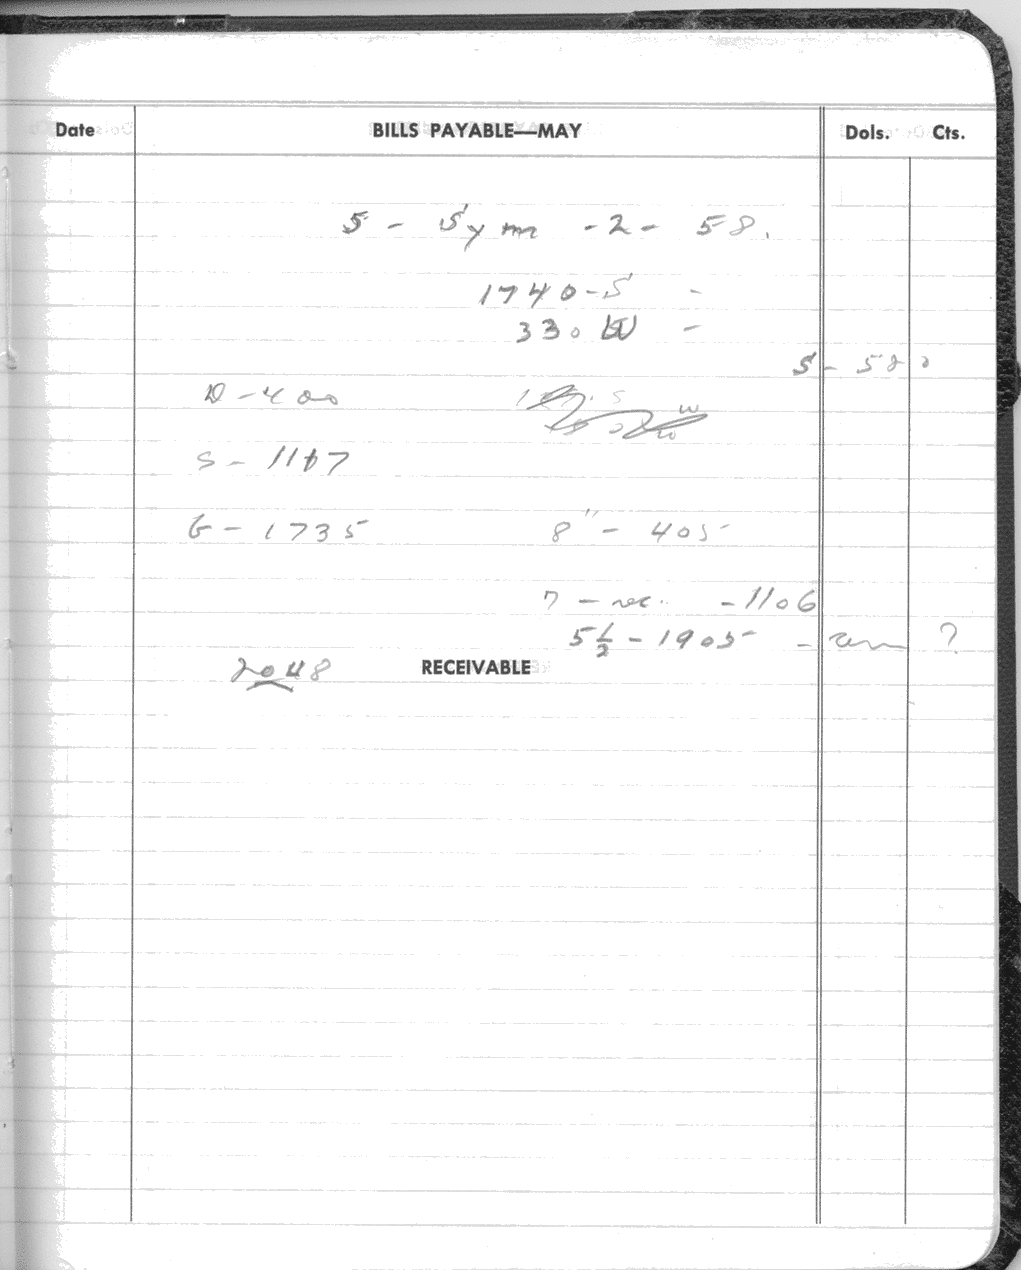 Date BILLS PAYABLE—MAY Dols. Cts.
5 - Sym - 2 - 58.
1740 - S -
330 W -
S - 580
D - 400
S - 1107
G - 1735 8" - 405
7 - rec. - 1106
5 1/2 - 1905 - ?
2048 RECEIVABLE